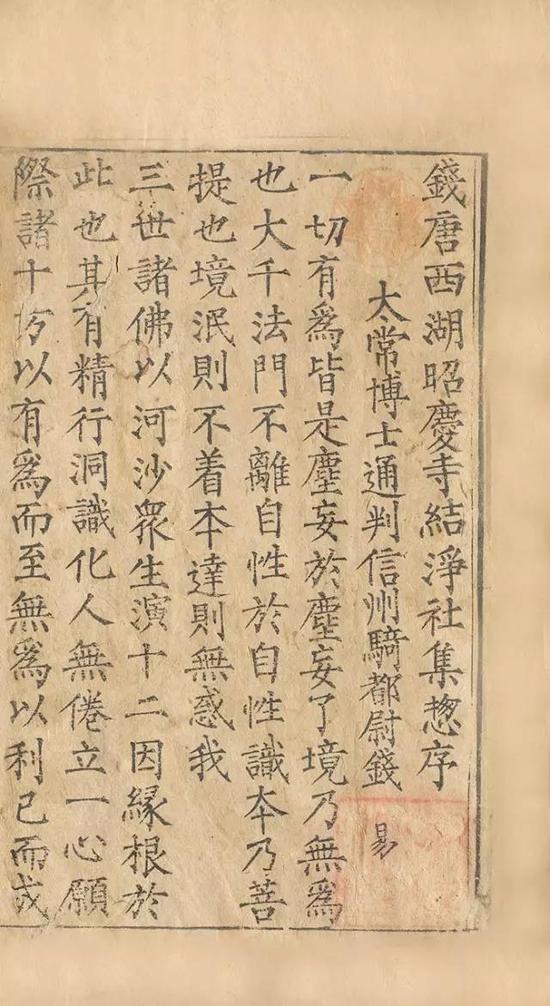 錢唐西湖昭慶寺結淨社集揔序
太常博士通判信州騎都尉錢 易
一切有爲皆是塵妄於塵妄了境乃無爲
也大千法門不離自性於自性識本乃菩
提也境泯則不着本達則無惑我
三世諸佛以河沙衆生演十二因緣根於
此也其有精行洞識化人無倦立一心願
際諸十方以有爲而至無爲以利已而成